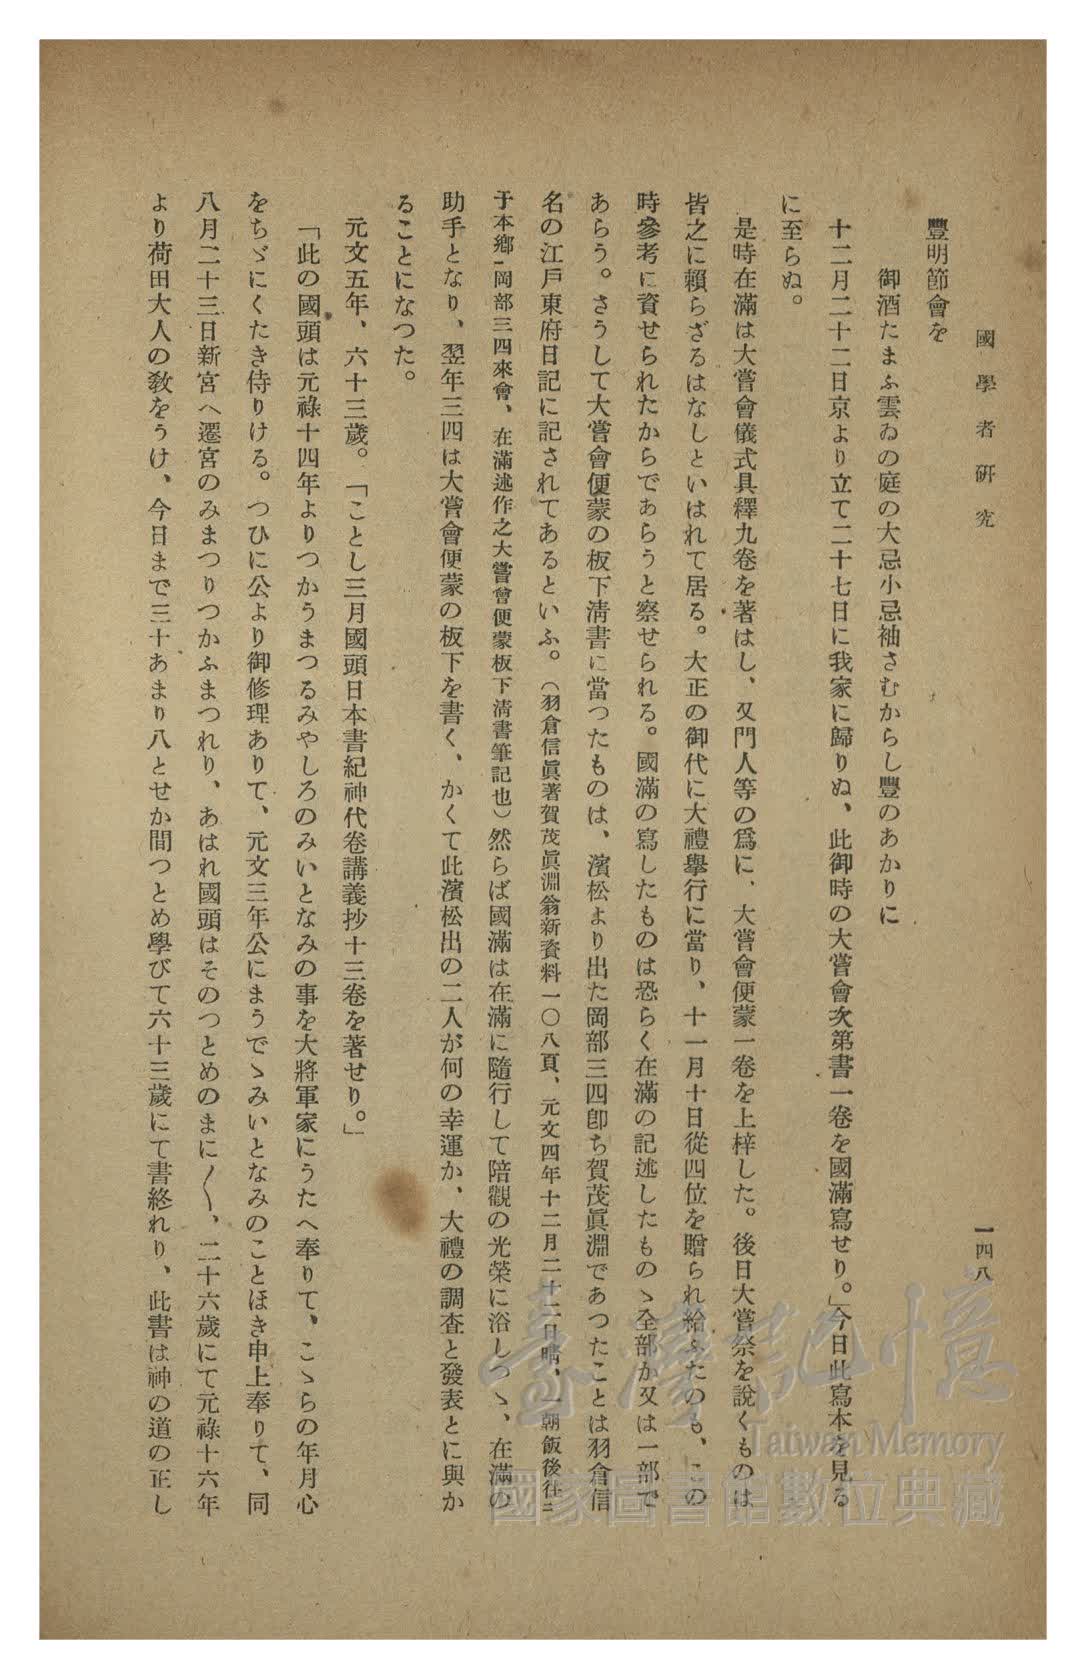 國學者研究
一四八
豐明節會を
御酒たまふ雲ゐの庭の大忌小忌袖さむからし豐のあかりに
十二月二十二日京より立て二十七日に我家に歸りぬ、此御時の大嘗會次第書一卷を國滿寫せり。」今日此寫本を見る
に至らぬ。
是時在滿は大嘗會儀式具釋九卷を著はし、又門人等の爲に、大嘗會便蒙一卷を上梓した。後日大嘗祭を說くものは
皆之に賴らざるはなしといはれて居る。大正の御代に大禮擧行に當り、十一月十日從四位を贈られ給ふたのも、この
時參考に資せられたからであらうと察せられる。國滿の寫したものは恐らく在滿の記述したものゝ全部か又は一部で
あらう。さうして大嘗會便蒙の板下淸書に當つたものは、濱松より出た岡部三四卽ち賀茂眞淵であつたことは羽倉信
名の江戶東府日記に記されてあるといふ。（羽倉信眞著賀茂眞淵翁新資料一〇八頁、元文四年十二月二十二日晴、一朝飯後往二
于本鄕一岡部三四來會、在滿述作之大嘗會便蒙板下淸書筆記也）然らば國滿は在滿に隨行して陪觀の光榮に浴しつゝ、在滿の
助手となり、翌年三四は大嘗會便蒙の板下を書く、かくて此濱松出の二人が何の幸運か、大禮の調査と發表とに與か
ることになつた。
元文五年、六十三歲。「ことし三月國頭日本書紀神代卷講義抄十三卷を著せり。」
「此の國頭は元祿十四年よりつかうまつるみやしろのみいとなみの事を大將軍家にうたへ奉りて、こゝらの年月心
をちゞにくたき侍りける。つひに公より御修理ありて、元文三年公にまうでゝみいとなみのことほき申上奉りて、同
八月二十三日新宮へ遷宮のみまつりつかふまつれり、あはれ國頭はそのつとめのまに〱、二十六歲にて元祿十六年
より荷田大人の敎をうけ、今日まで三十あまり八とせか間つとめ學びて六十三歲にて書終れり、此書は神の道の正し
臺灣記憶
Taiwan Memory
國家圖書館數位典藏